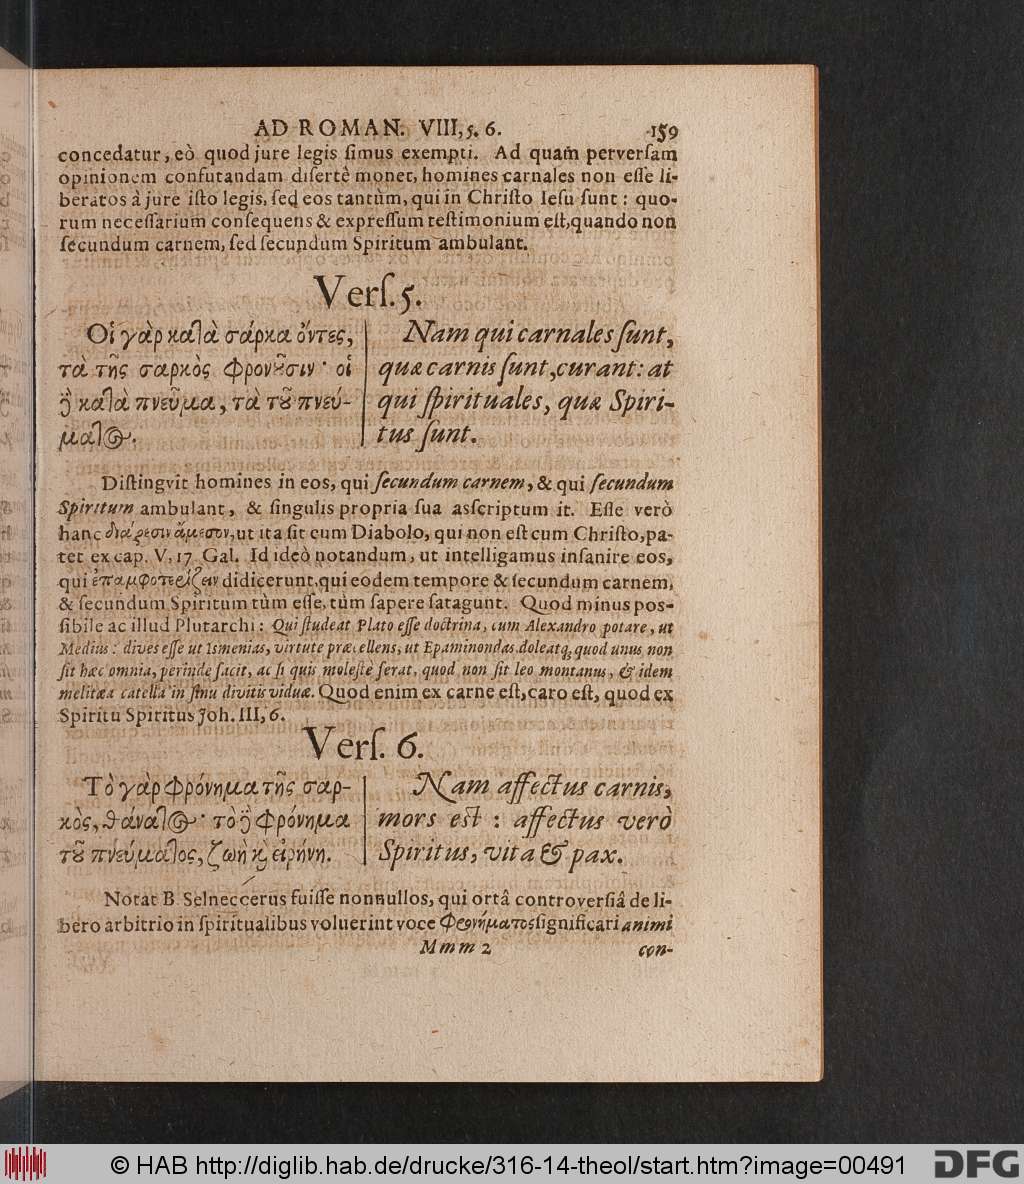 AD ROMAN. VIII, 5. 6. 159
concedatur, eò quod jure legis ſimus exempti. Ad quam perverſam
opinionem confutandam diſertè monet, homines carnales non eſſe li-
beratos à jure iſto legis, ſed eos tantùm, qui in Chriſto Ieſu ſunt: quo-
rum neceſſarium conſequens & expreſſum teſtimonium eſt, quando non
ſecundum carnem, ſed ſecundum Spiritum ambulant.
Verſ. 5.
Οἱ γὰρ κατὰ σάρκα ὄντες,
τὰ τῆς σαρκὸς φρονȣ͂σιν· οἱ
δὲ κατὰ πνεῦμα, τὰ τȣ͂ πνεύ-
ματ⊙.
Nam qui carnales ſunt,
quæ carnis ſunt, curant: at
qui ſpirituales, quæ Spiri-
tus ſunt.
Diſtingvit homines in eos, qui ſecundum carnem, & qui ſecundum
Spiritum ambulant, & ſingulis propria ſua asſcriptum it. Eſſe verò
hanc διαίρεσιν ἄμεσον, ut ita ſit cum Diabolo, qui non eſt cum Chriſto, pa-
tet ex cap. V, 17. Gal. Id ideò notandum, ut intelligamus inſanire eos,
qui ἐπαμφοτερίζειν didicerunt, qui eodem tempore & ſecundum carnem,
& ſecundum Spiritum tùm eſſe, tùm ſapere ſatagunt. Quod minus pos-
ſibile ac illud Plutarchi: Qui ſtudeat Plato eſſe doctrina, cum Alexandro potare, ut
Medius: dives eſſe ut Iſmenias, virtute præcellens, ut Epaminondas, doleatq́, quod unus non
ſit hæc omnia, perinde facit, ac ſi quis moleſtè ferat, quod non ſit leo montanus, & idem
melitæa catella in ſinu divitis viduæ. Quod enim ex carne eſt, caro eſt, quod ex
Spiritu Spiritus Joh. III, 6.
Verſ. 6.
Τὸ γὰρ φρόνημα τῆς σαρ-
κὸς, θάνατ⊙· τὸ δὲ φρόνημα
τȣ͂ πνεύματος, ζωὴ κὶ εἰρήνη.
Nam affectus carnis,
mors est: affectus verò
Spiritus, vita & pax.
Notat B. Selneccerus fuiſſe nonnullos, qui ortâ controverſiâ de li-
bero arbitrio in ſpiritualibus voluerint voce Φρονήματος ſignificari animi
Mmm 2 con-
© HAB http://diglib.hab.de/drucke/316-14-theol/start.htm?image=00491 DFG